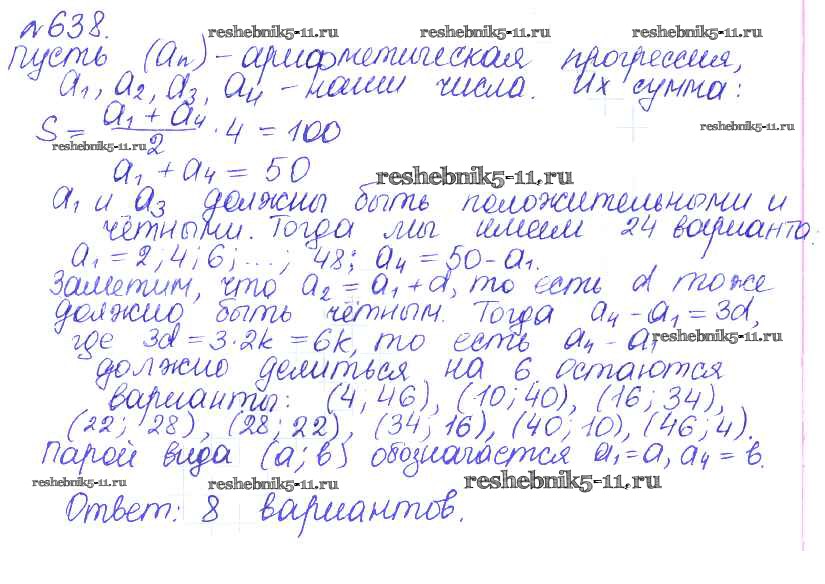 №638.
reshebnik5-11.ru reshebnik5-11.ru reshebnik5-11.ru
Пусть (an) - арифметическая прогрессия,
a1, a2, a3, a4 - наши числа. Их сумма:
S = (a1 + a4)/2 · 4 = 100
reshebnik5-11.ru reshebnik5-11.ru
a1 + a4 = 50
reshebnik5-11.ru
a1 и a3 должны быть положительными и
чётными. Тогда мы имеем 24 варианта:
a1 = 2; 4; 6; ...; 48; a4 = 50 - a1.
Заметим, что a2 = a1 + d, то есть d тоже
должно быть чётным. Тогда a4 - a1 = 3d,
где 3d = 3·2k = 6k, то есть a4 - a1
reshebnik5-11.ru
должно делиться на 6 остаются
варианты: (4; 46), (10; 40), (16; 34),
(22; 28), (28; 22), (34; 16), (40; 10), (46; 4).
Парой вида (a; в) обозначается a1 = a, a4 = в.
reshebnik5-11.ru reshebnik5-11.ru reshebnik5-11.ru
Ответ: 8 вариантов.